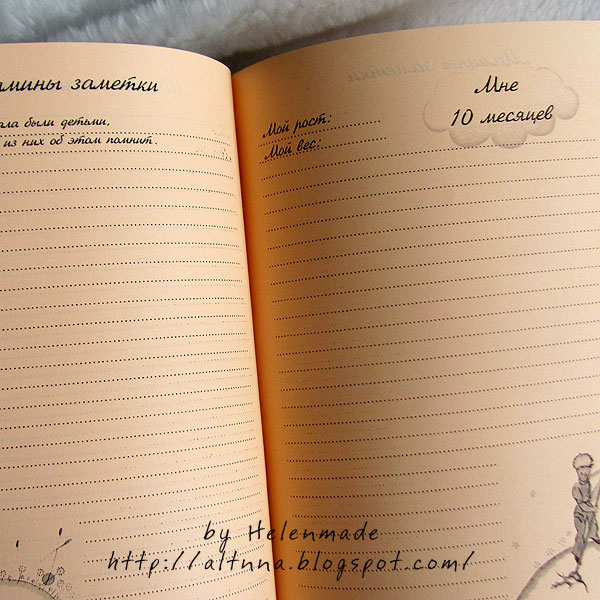 амины заметки
ала были детьми,
из них об этом помнит.
Мне
10 месяцев
Мой рост:
Мой вес:
by Helenmade
http://altnna.blogspot.com/